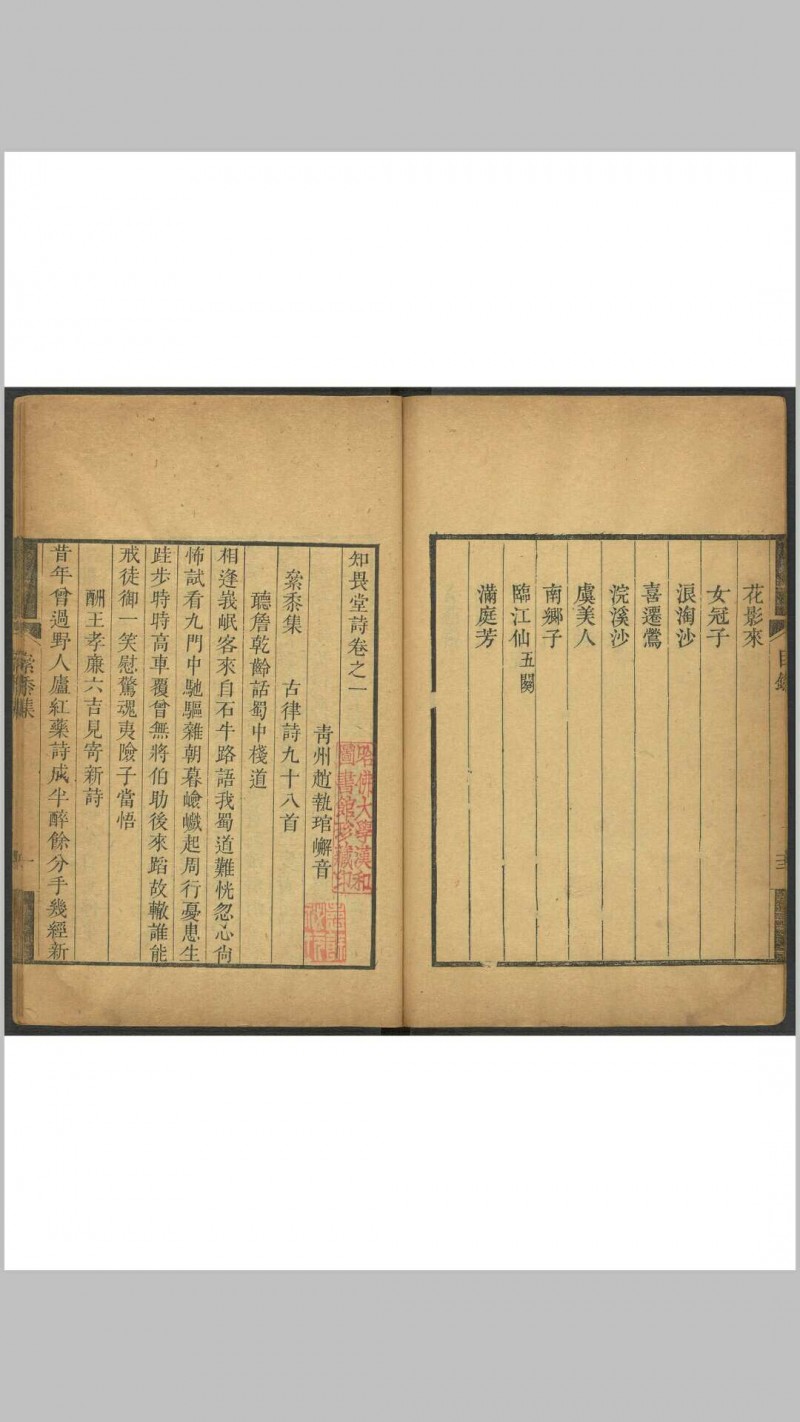 花影來
女冠子
浪淘沙
喜遷鶯
浣溪沙
虞美人
南鄉子
臨江仙五闋
滿庭芳
知畏堂詩卷之一
青州趙執琯嶰音
絫黍集 古律詩九十八首
聽詹乾齡話蜀中棧道
相逢峩岷客來自石牛路語我蜀道難恍忽心尙
怖試看九門中馳驅雜朝暮嶮巇起周行憂患生
跬步時時高車覆曾無將伯助後來蹈故轍誰能
戒徒御一笑慰驚魂夷險子當悟
酬王孝廉六吉見寄新詩
昔年曾過野人廬紅藥詩成半醉餘分手幾經新
哈佛大學漢和
圖書館珍藏印
目錄
絫黍集
一